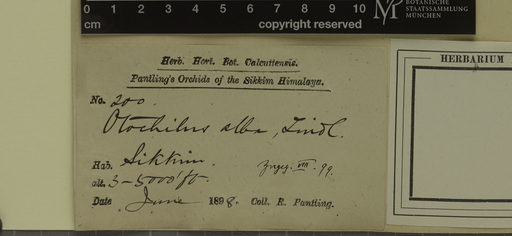 0 1 2 3 4 5 6 7 8 9 10
cm
copyright reserved
BOTANISCHE
STAATSSAMMLUNG
MÜNCHEN
HERBARIUM
Herb. Hort. Bot. Calcuttensis.
Pantling's Orchids of the Sikkim Himalaya.
No. 200.
Otochilus alba, Lindl.
Hab. Sikkim.
Zugeg. VIII. 99.
alt. 3-5000 ft.
Date June 1898. Coll. R. Pantling.